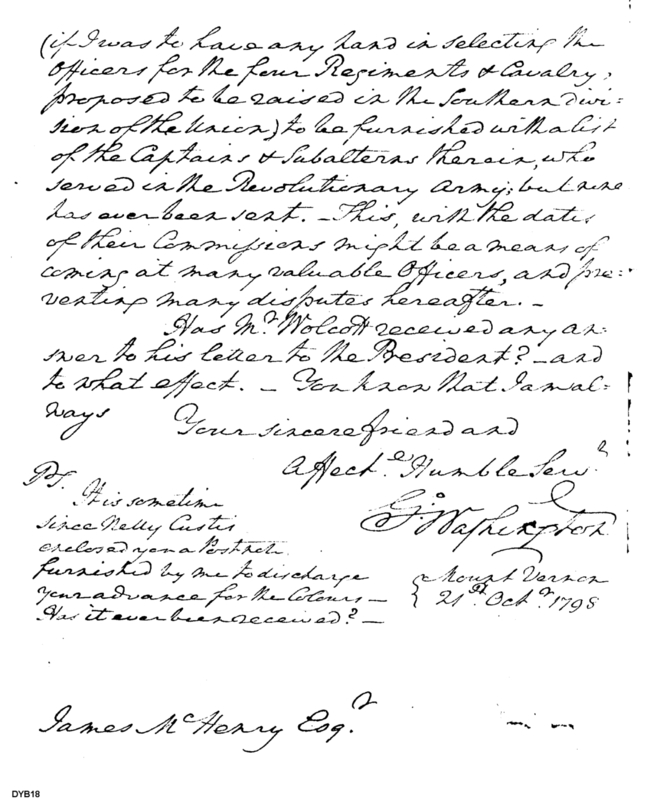 (if I was to have any hand in selecting the
Officers for the four Regiments & Cavalry,
proposed to be raised in the Southern divi=
sion of the Union) to be furnished with a list
of the Captains & Subalterns therein, who
served in the Revolutionary Army; but none
has ever been sent. – This, with the dates
of their Commissions might be a means of
coming at many valuable Officers, and pre=
venting many disputes hereafter. –
Has Mr Wolcott received any an=
swer to his letter to the President? – and
to what effect. – You know that I am al=
ways Your sincere friend and
Affecte Humble Servr
Go: Washington
PS.
It is sometime
since Nelly Custis
enclosed you a Post note
furnished by me to discharge
your advance for the Colours –
Has it ever been received? –
Mount Vernon
21st Octr 1798
James McHenry Esqr
DYB18